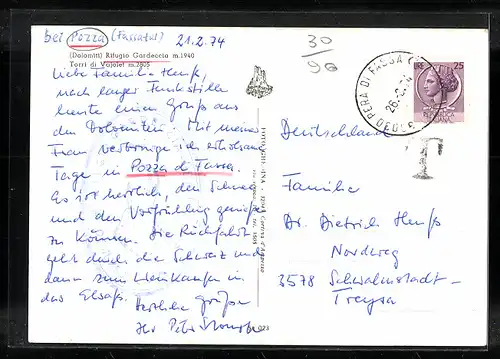 bei Pozza (Fassatal) 21.2.74
(Dolomiti) Rifugio Gardeccia m.1940
Torri di Vajolet m.2805
Liebe Familie Henß,
nach langer Funkstille
heute einen Gruß aus
den Dolomiten. Mit meiner
Frau verbringe ich erholsame
Tage in Pozza di Fassa.
Es ist herrlich, den Schnee
und den Vorfrühling genießen
zu können. Die Rückfahrt
geht durch die Schweiz und
dann zum Weinkaufen in
das Elsaß. Herzliche Grüße
Ihr Peter
30
96
25
PERA DI FASSA
T
Deutschland
Familie
Dr. Dietrich Henß
Nordweg
3578 Schwalmstadt-
Treysa